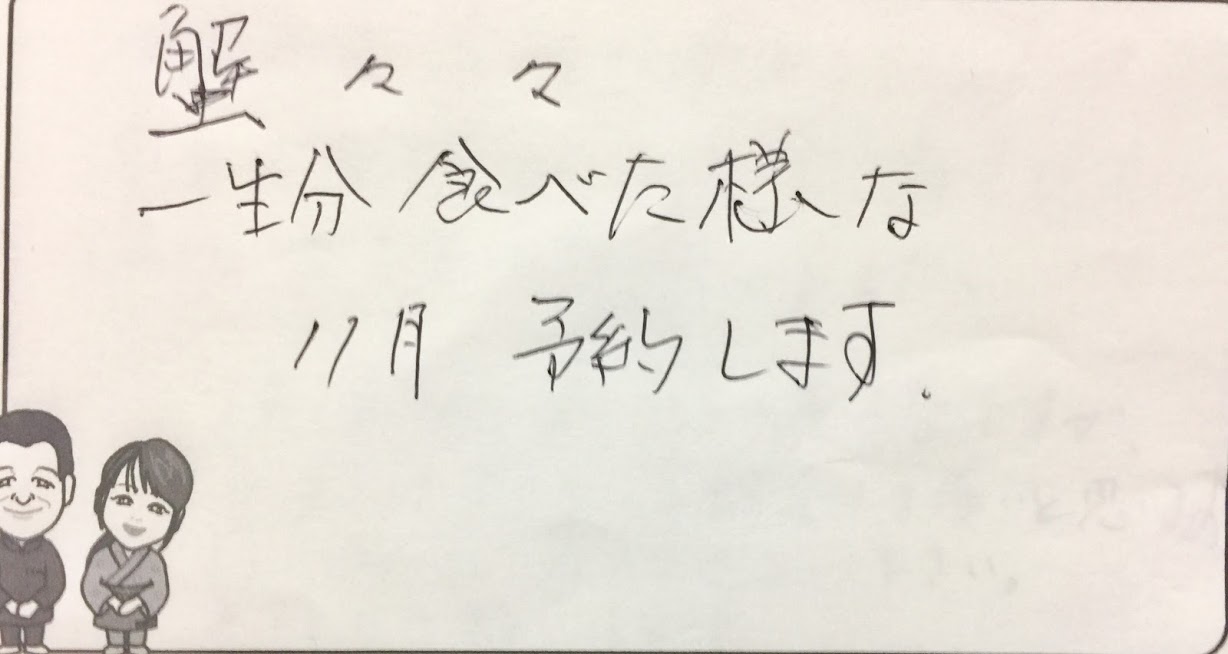 蟹 々 々
一生分 食べた様な
11月 予約します.